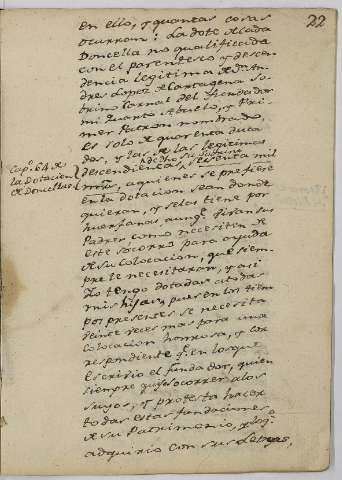 22
en ello, y quantas cosas
ocurran: La dote de cada
Doncella no qualificada
con el parentesco y descen
dencia legitima de Dn An
dres Lopez de Cartagena So
brino carnal del fundador
mi Quarto Abuelo, y Pri
mer Patron nombrado,
es solo de quarenta duca
dos, y la de las legitimas
de dho su sobrino
descendientas, sesenta mil
Cap.o 64 de
la Dotacion
de Doncellas
mrs, aquienes se prefiere
en la dotacion sean donde
quieran, y se les tiene por
huerfanas aunq.e vivan sus
Padres como necesiten de
este socorro para ayuda
de su colocacion, que siem
pre le necesitaran, y asi
Yo tengo dotadas a todas
mis hijas, pues en los tiem
pos presentes se necesita
veinte veces mas para una
colocacion honrosa, y cor
respondiente q.e en los que
escrivio el fundador, quien
siempre quiso socorrer a los
suyos, y protesta hacer
todas estas fundaciones
de su Patrimonio, y lo q.e
adquirio con sus Letras,